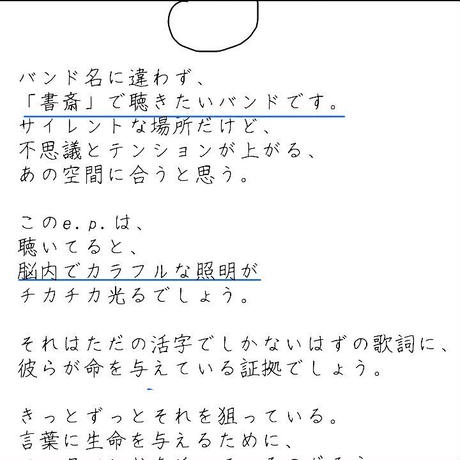 バンド名に違わず、
「書斎」で聴きたいバンドです。
サイレントな場所だけど、
不思議とテンションが上がる、
あの空間に合うと思う。
このe.p.は、
聴いてると、
脳内でカラフルな照明が
チカチカ光るでしょう。
それはただの活字でしかないはずの歌詞に、
彼らが命を与えている証拠でしょう。
きっとずっとそれを狙っている。
言葉に生命を与えるために、